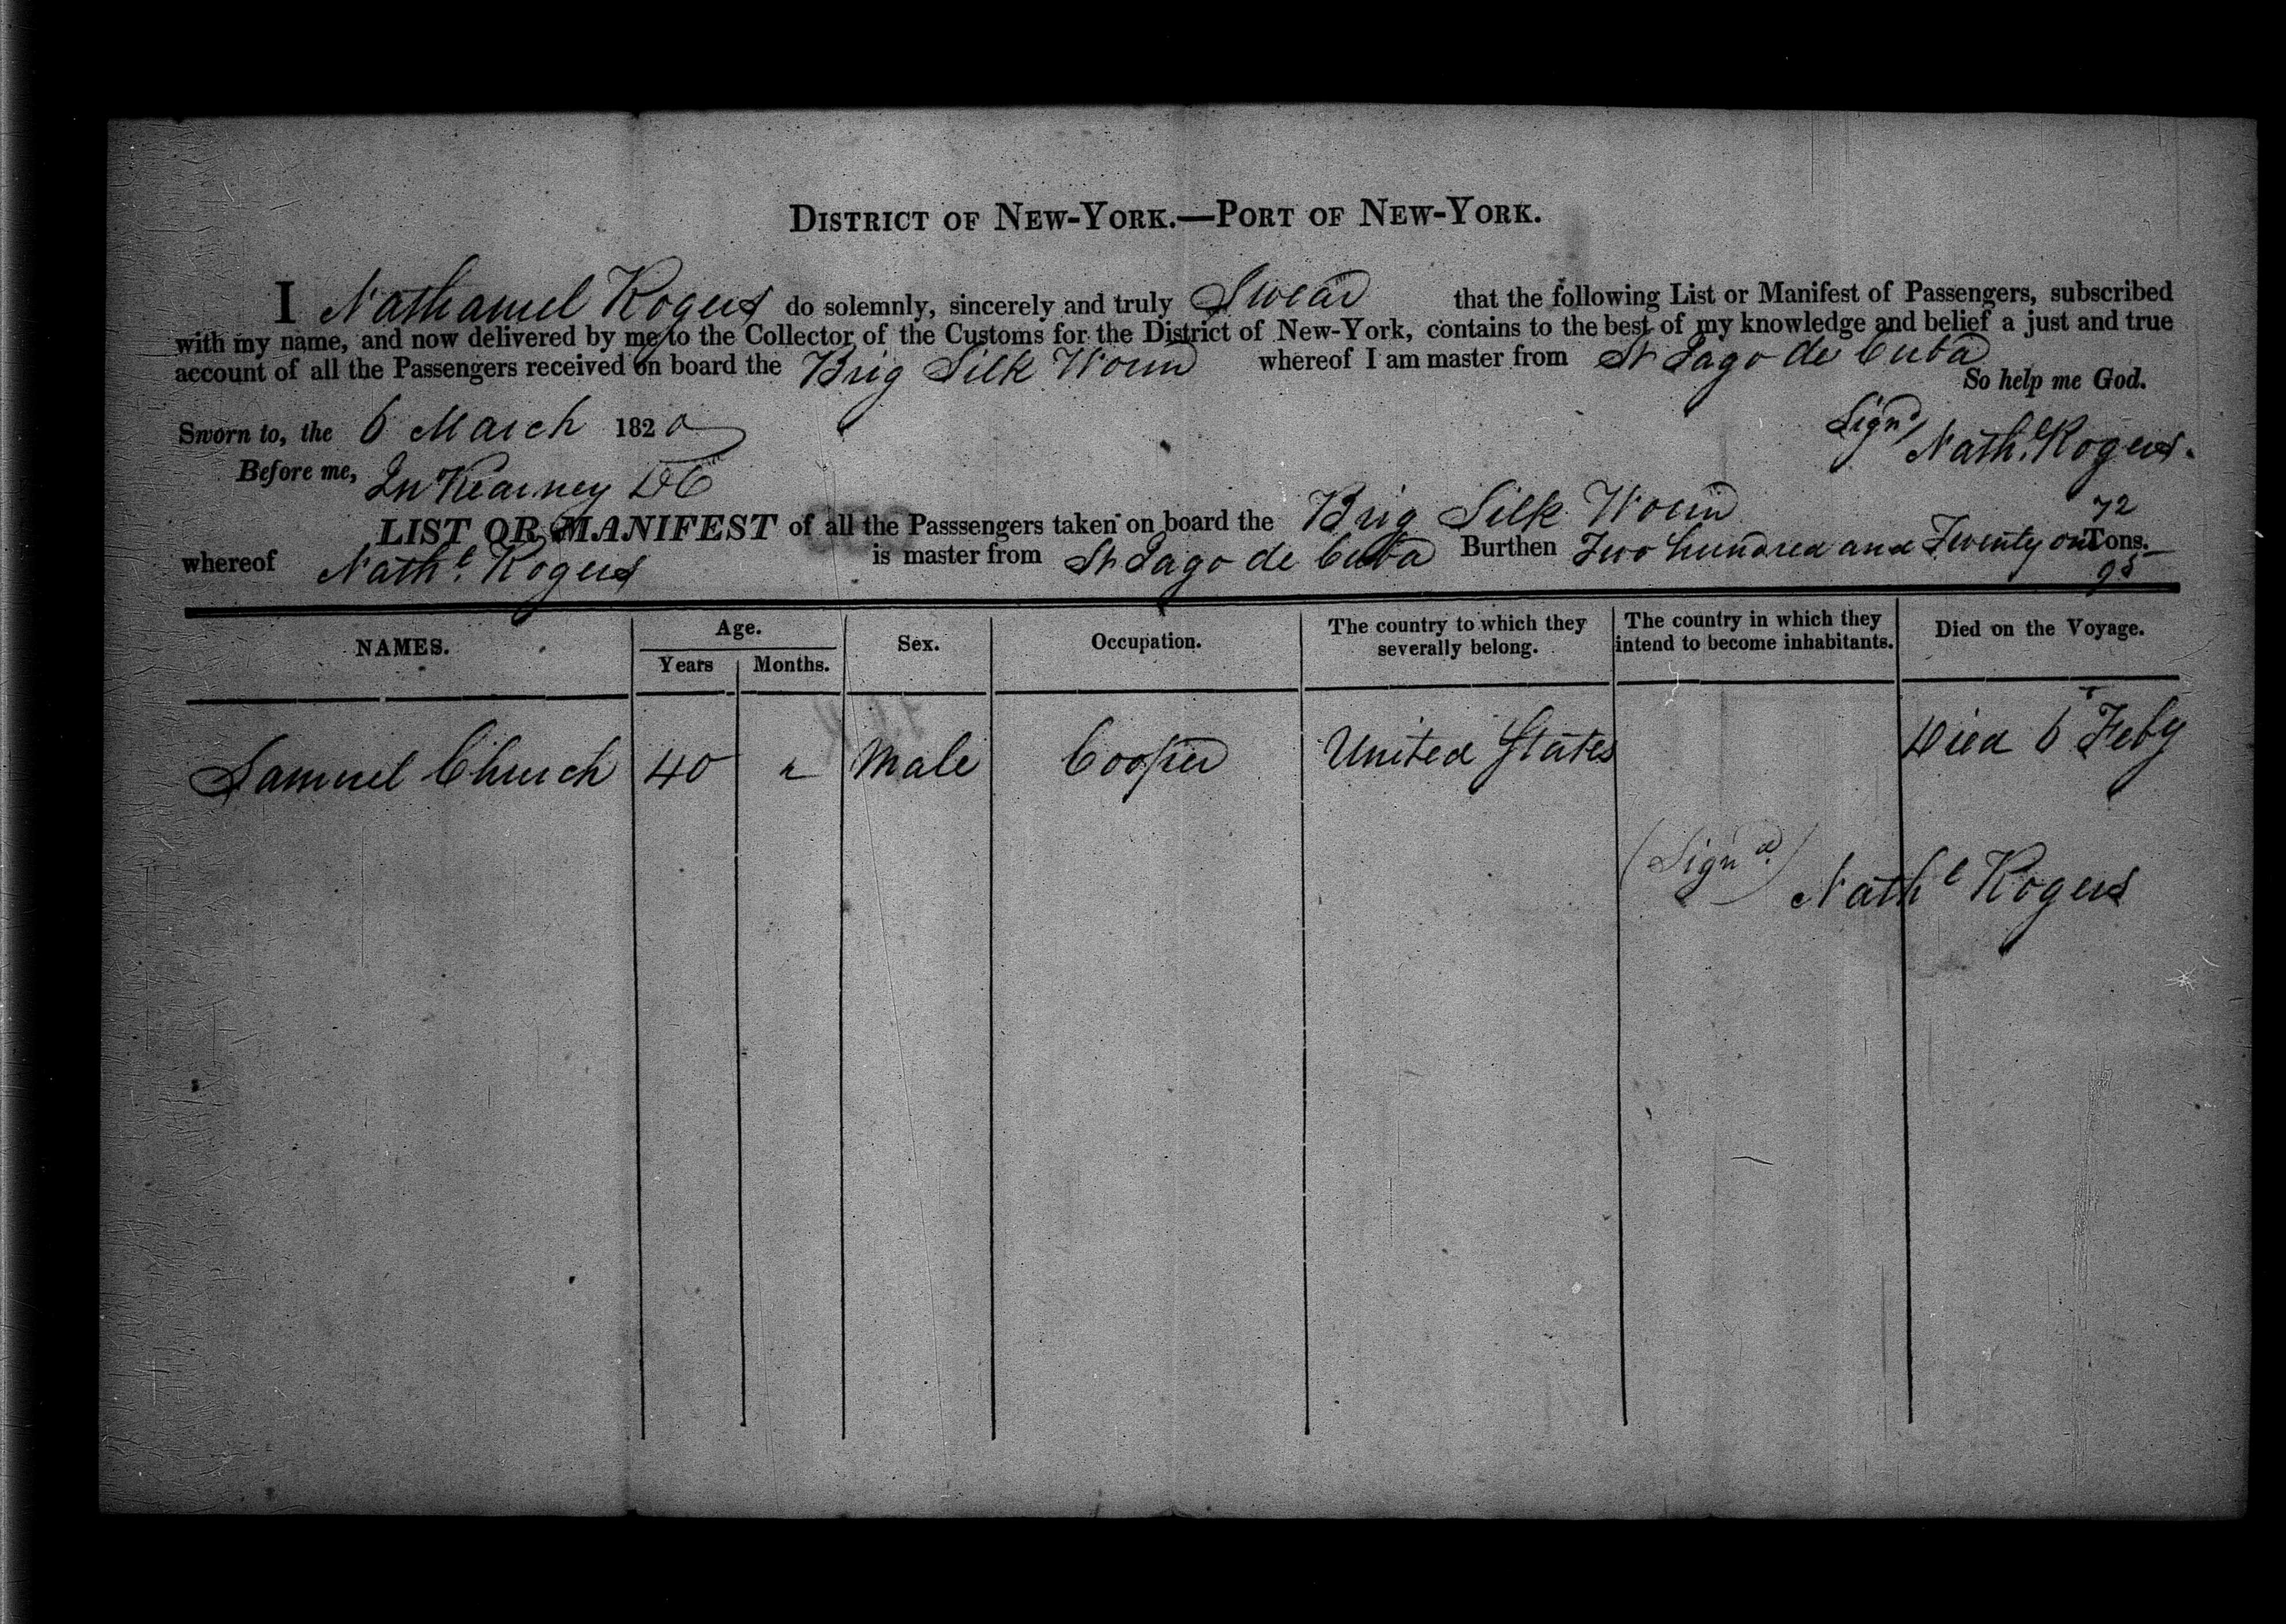 DISTRICT OF NEW-YORK.—PORT OF NEW-YORK.
I Nathaniel Rogers do solemnly, sincerely and truly Swear that the following List or Manifest of Passengers, subscribed
with my name, and now delivered by me to the Collector of the Customs for the District of New-York, contains to the best of my knowledge and belief a just and true
account of all the Passengers received on board the Brig Silk Worm whereof I am master from St Jago de Cuba
So help me God.
Sworn to, the 6 March 1820
Signd Nathl Rogers.
Before me, Jn Kearney DC
LIST OR MANIFEST of all the Passsengers taken on board the Brig Silk Worm
whereof Nathl. Rogers is master from St Jago de Cuba Burthen Two hundred and Twenty one 72/95 Tons.
NAMES. Age. Sex. Occupation. The country to which they severally belong. The country in which they intend to become inhabitants. Died on the Voyage.
Years Months.
Samuel Church 40 Male Cooper United States Died 6 Feby
(Signd.) Nathl Rogers